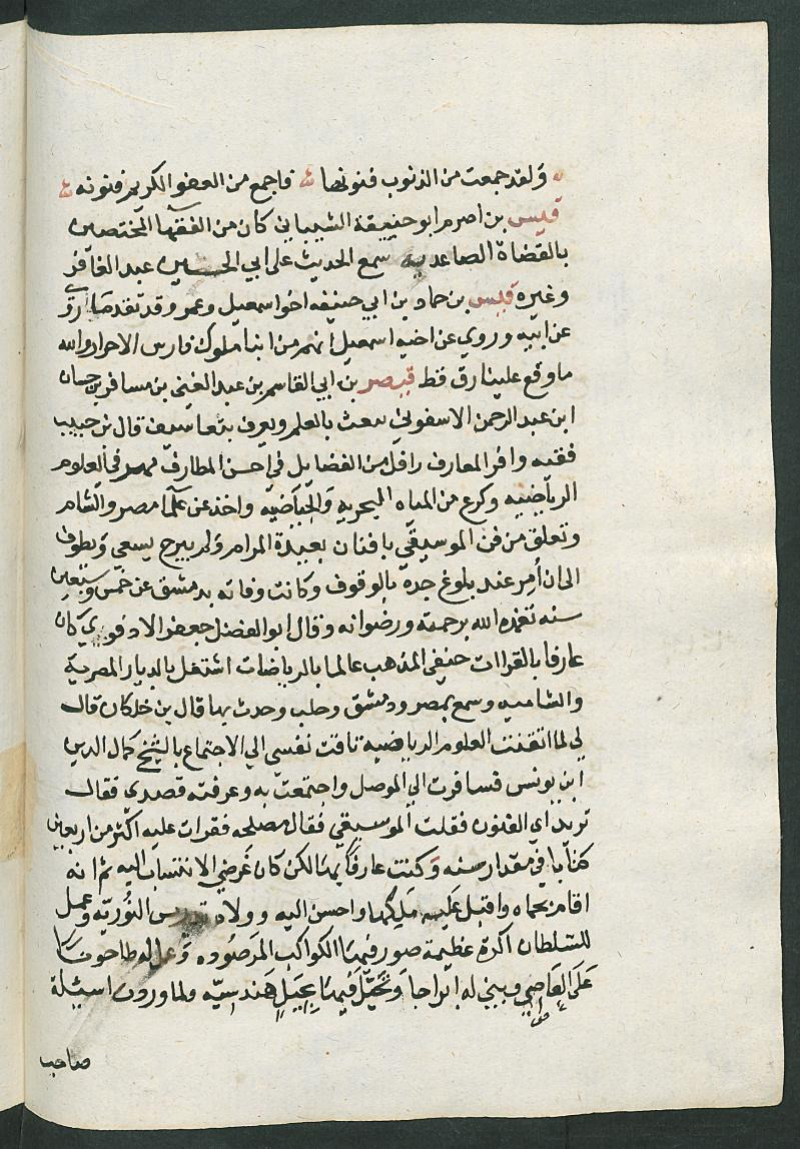 ولقد جمعت من الذنوب فنونها فاجمع من العفو الكريم فنونه
قيس بن اصرم ابو حنيفة الشيباني كان من الفقها المختصين
بالقضاة الصاعديه سمع الحديث على ابي الحسين عبد الغافر
وغيره قيس بن حماد بن ابي حنيفه اخو اسمعيل وعمر وقد تقدما روى
عن ابيه وروي عن اخيه اسمعيل انهم من ابنا ملوك فارس الاحرار والله
ما وقع علينا رق قط قيصر بن ابي القاسم بن عبد الغني بن مسافر بن حسان
ابن عبد الرحمن الاسفوني ينعت بالعلم ويعرف بتعاسيف قال بن حبيب
فقيه وافر المعارف رافل من الفضايل في احسن المطارف مهر في العلوم
الرياضيه وكرع من المياه البحريه والحياضيه واخذ عن علما مصر والشام
وتعلق من فن الموسيقي بافنان بعيدة المرام ولم يبرح يسعى ويطوف
الى ان أمر عند بلوغ جده بالوقوف وكانت وفاته بدمشق عن خمس وسبعين
سنه تغمده الله برحمته ورضوانه وقال ابو الفضل جعفر الادفوي كان
عارفا بالقراات حنفي المذهب عالما بالرياضات اشتغل بالديار المصرية
والشاميه وسمع بمصر ودمشق وحلب وحدث بها قال بن خلكان قال
لي لما اتقنت العلوم الرياضيه تاقت نفسي الي الاجتماع بالشيخ كمال الدين
ابن يونس فسافرت الي الموصل واجتمعت به وعرفته قصدي فقال
تريد اي الفنون فقلت الموسيقي فقال مصلحه فقرات عليه اكثر من اربعين
كتابا في مقدار سنه وكنت عارفا بها لكن كان غرضي الانتساب اليه ثم انه
اقام بحماه واقبل عليه ملكها واحسن اليه وولاه تدريس النوريه وعمل
للسلطان اكرة عظيمة صور فيها الكواكب المرصوده وعمل له طاحونا
على العاصي وبني له ابراجا وتحيل فيها بحيل هندسيه ولما ورد اسيلة
من
صاحب